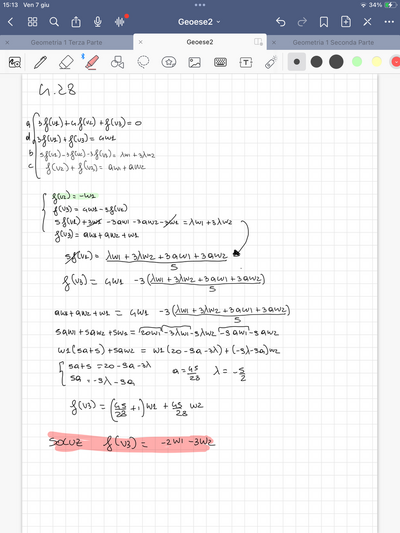 15:13 Ven 7 giu
34%
Geoese2
Geometria 1 Terza Parte
Geoese2
Geometria 1 Seconda Parte
4.28
a 3f(v1)+4f(v2)+f(v3)=0
d 3f(v1)+f(v3)=4w1
b 5f(v1)-3f(v2)-3f(v3)=λw1+3λw2
c f(v2)+f(v3)=aw1+aw2
f(v2)=-w1
f(v3)=4w1-3f(v1)
5f(v1)+3w1-3aw1-3aw2-3w1=λw1+3λw2
f(v3)=aw1+aw2+w1
5f(v1)= λw1+3λw2+3aw1+3aw2
5
f(v3)= 4w1 -3(λw1+3λw2+3aw1+3aw2)
5
aw1+aw2+w1 = 4w1 -3(λw1+3λw2+3aw1+3aw2)
5
5aw1+5aw2+5w1=20w1-3λw1-9λw2-9aw1-9aw2
w1(5a+5)+5aw2=w1(20-9a-3λ)+(-9λ-9a)w2
5a+5=20-9a-3λ
5a=-9λ-9a
a=45/28 λ=-5/2
f(v3)=(45/28+1)w1+45/28 w2
SOLUZ f(v3)= -2w1-3w2